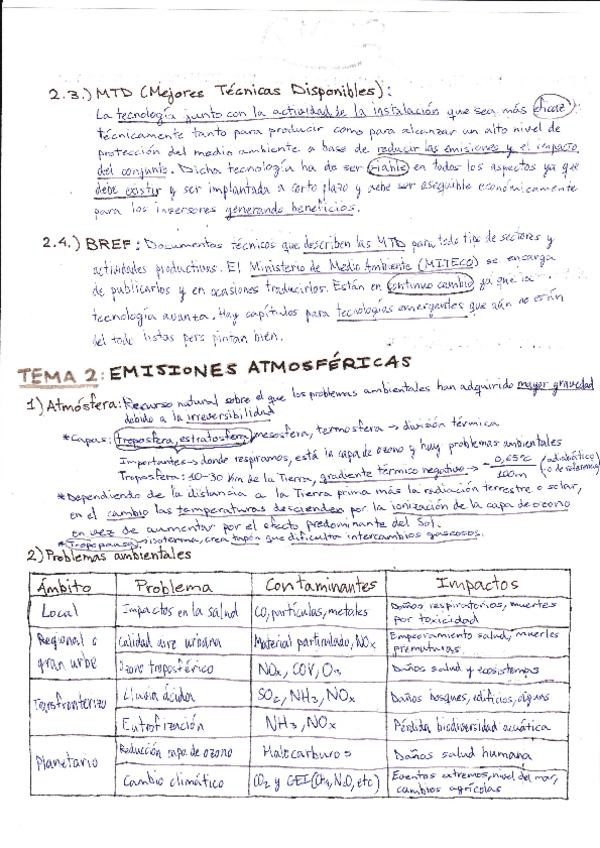 2.3.) MTD (Mejores Técnicas Disponibles):
La tecnología junto con la actividad de la instalación que sea más eficaz
técnicamente tanto para producir como para alcanzar un alto nivel de
protección del medio ambiente a base de reducir las emisiones y el impacto
del conjunto. Dicha tecnología ha de ser viable en todos los aspectos ya que
debe existir y ser implantada a corto plazo y debe ser asequible económicamente
para los inversores generando beneficios.
2.4.) BREF: Documentos técnicos que describen las MTD para todo tipo de sectores y
actividades productivas. El Ministerio de Medio Ambiente (MITECO) se encarga
de publicarlos y en ocasiones traducirlos. Están en continuo cambio ya que la
tecnología avanza. Hay capítulos para tecnologías emergentes que aún no están
del todo listas pero pintan bien.
TEMA 2: EMISIONES ATMOSFÉRICAS
1) Atmósfera: Recurso natural sobre el que los problemas ambientales han adquirido mayor gravedad
debido a la irreversibilidad
*Capas: troposfera, estratosfera, mesosfera, termosfera → división térmica
Importantes → donde respiramos, está la capa de ozono y hay problemas ambientales
Troposfera: 10-30 Km de la Tierra, gradiente térmico negativo → -0,65ºC/100m (adiabático o de referencia)
*Dependiendo de la distancia a la Tierra prima más la radiación terrestre o solar,
en el cambio las temperaturas descienden por la ionización de la capa de ozono
en vez de aumentar por el efecto predominante del Sol.
*Tropopausa → isoterma, crea tapón que dificulta intercambios gaseosos.
2) Problemas ambientales
Ámbito Problema Contaminantes Impactos
Local Impactos en la salud CO, partículas, metales Daños respiratorios, muertes
por toxicidad
Regional o gran urbe Calidad aire urbana Material particulado, NOx Empeoramiento salud, muertes
prematuras
Ozono troposférico NOx, COV, O3 Daños salud y ecosistemas
Transfronterizo Lluvia ácida SO2, NH3, NOx Daños bosques, edificios, aguas
Eutrofización NH3, NOx Pérdida biodiversidad acuática
Planetario Reducción capa de ozono Halocarburos Daños salud humana
Cambio climático CO2 y GEI (CH4, N2O, etc) Eventos extremos, nivel del mar,
cambios agrícolas